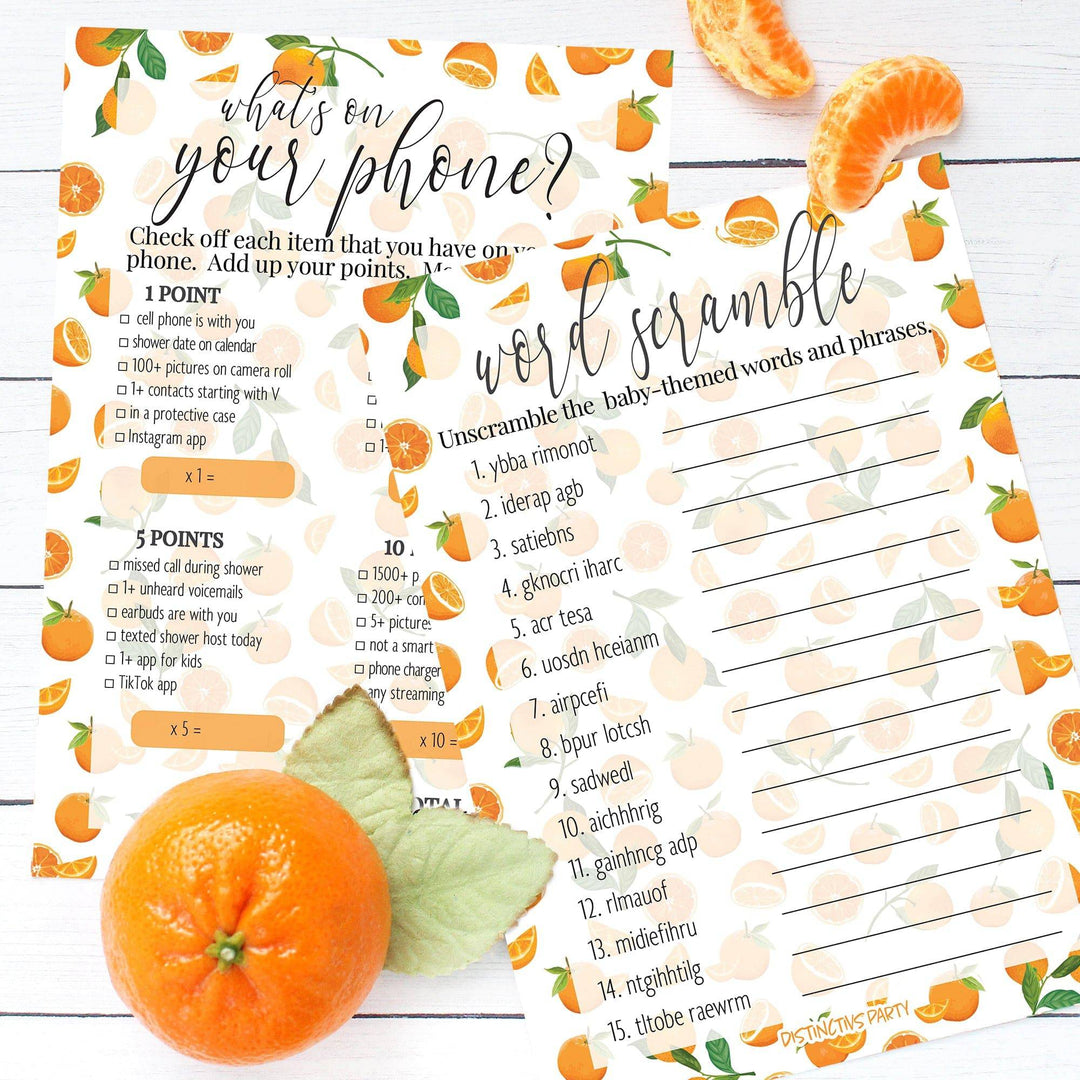 what's on
your phone?
Check off each item that you have on
phone. Add up your points.
1 POINT
cell phone is with you
shower date on calendar
100+ pictures on camera roll
1+ contacts starting with V
in a protective case
Instagram app
x 1 =
5 POINTS
missed call during shower
1+ unheard voicemails
earbuds are with you
texted shower host today
1+ app for kids
TikTok app
x 5 =
10
1500+ p
200+ con
5+ pictures
not a smart
phone charger
any streaming
x 10 =
OTAL
word scramble
Unscramble the baby-themed words and phrases.
1. ybba rimonot
2. iderap agb
3. satiebns
4. gknocri iharc
5. acr tesa
6. uosdn hceianm
7. airpcefi
8. bpur lotcsh
9. sadwedl
10. aichhhrig
11. gainhncg adp
12. rlmauof
13. midiefihru
14. ntgihhtilg
15. tltobe raewrm
DISTINCTIVS PARTY